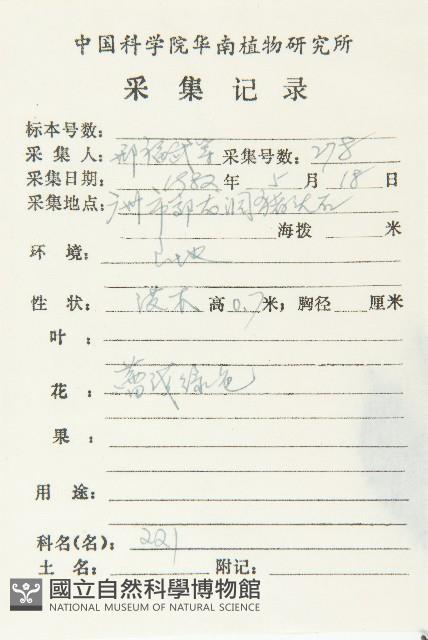 中国科学院华南植物研究所
采集记录
标本号数:
采集人: 邢福武等 采集号数: 278
采集日期: 1982年5月18日
采集地点: 广州市郊
海拨 米
环境: 山地
性状: 灌木 高0.7米; 胸径 厘米
叶:
花: 绿色
果:
用途:
科名(名): 221
土名: 附记:
國立自然科學博物館
NATIONAL MUSEUM OF NATURAL SCIENCE